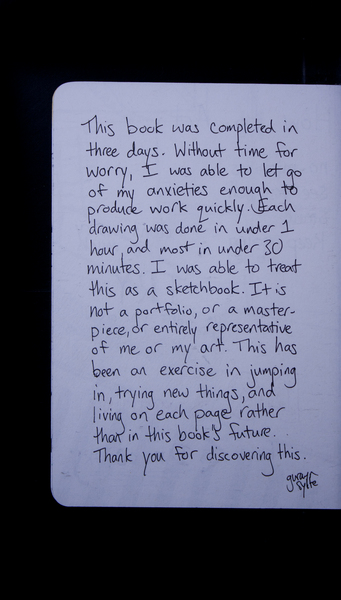 This book was completed in
three days. Without time for
worry, I was able to let go
of my anxieties enough to
produce work quickly. Each
drawing was done in under 1
hour, and most in under 30
minutes. I was able to treat
this as a sketchbook. It is
not a portfolio, or a master-
piece, or entirely representative
of me or my art. This has
been an exercise in jumping
in, trying new things, and
living on each page rather
than in this book's future.
Thank you for discovering this.